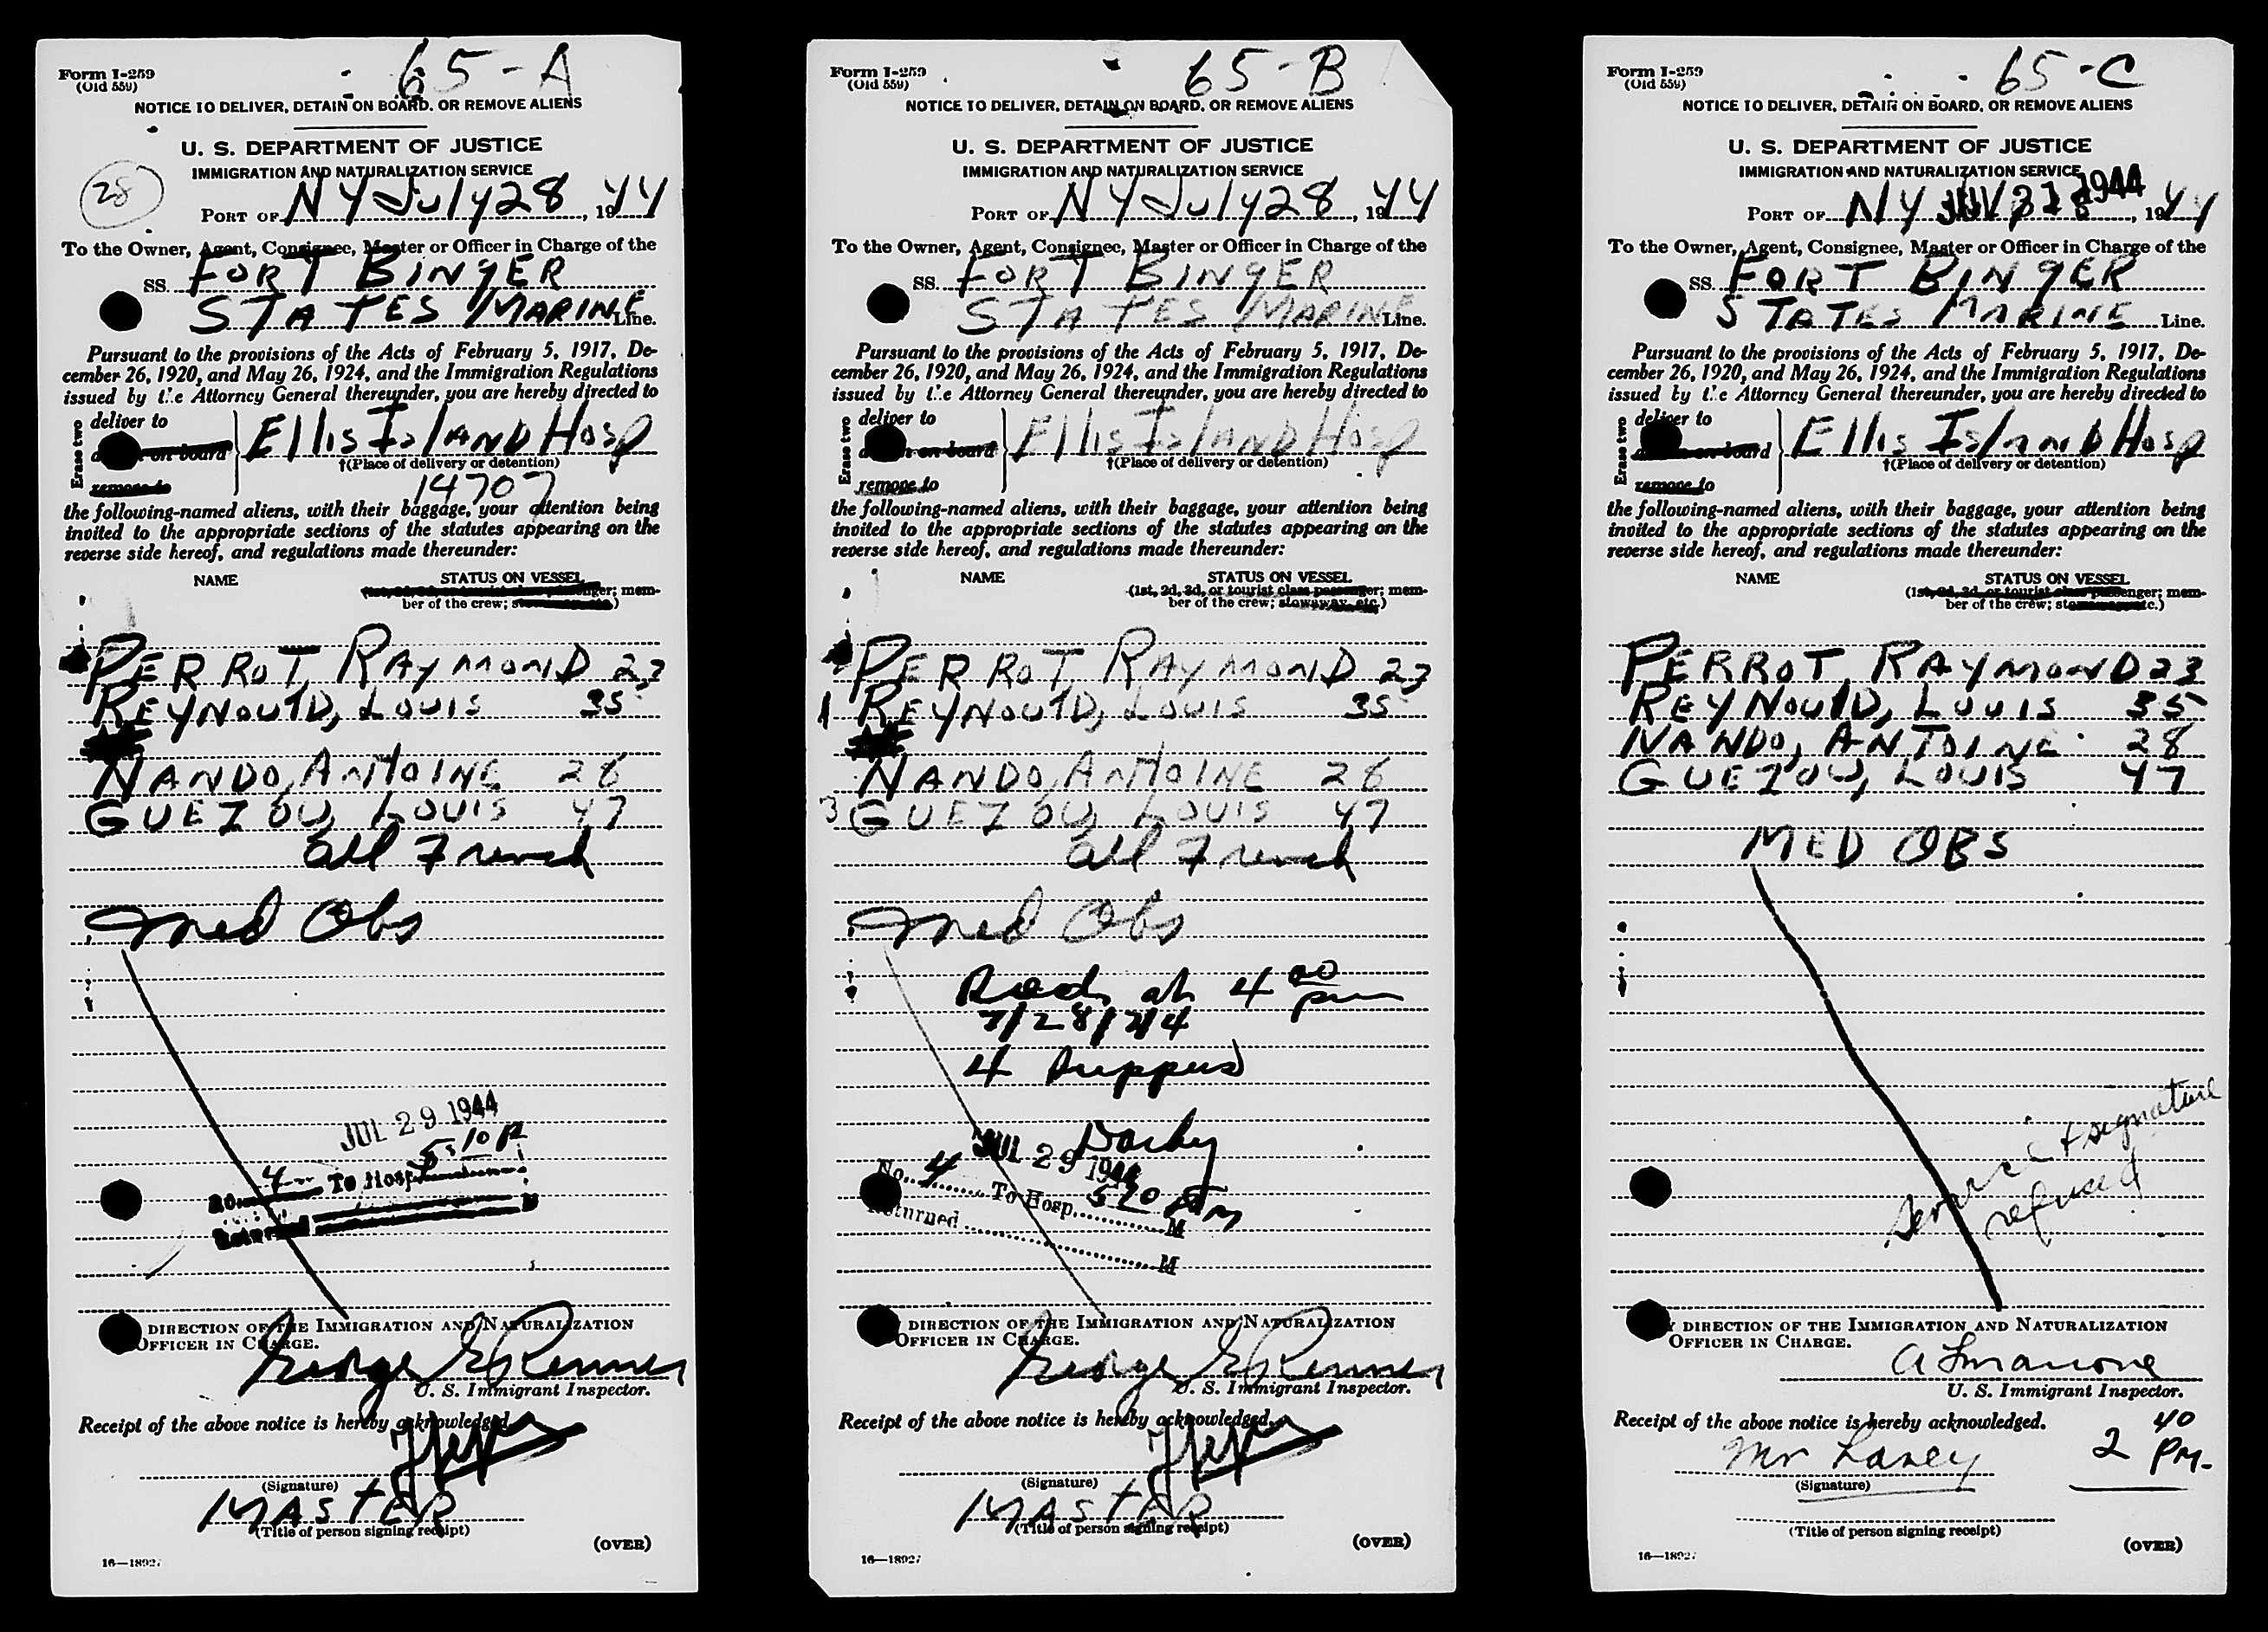 65-A
Form I-259
(Old 559)
NOTICE TO DELIVER, DETAIN ON BOARD, OR REMOVE ALIENS
U. S. DEPARTMENT OF JUSTICE
IMMIGRATION AND NATURALIZATION SERVICE
28
PORT OF NY July 28, 1944
To the Owner, Agent, Consignee, Master or Officer in Charge of the
SS. FORT BINGER
STATES MARINE Line.
Pursuant to the provisions of the Acts of February 5, 1917, De-
cember 26, 1920, and May 26, 1924, and the Immigration Regulations
issued by the Attorney General thereunder, you are hereby directed to
Erase two
deliver to
on board
remove to
Ellis Island Hosp
†(Place of delivery or detention)
14707
the following-named aliens, with their baggage, your attention being
invited to the appropriate sections of the statutes appearing on the
reverse side hereof, and regulations made thereunder:
NAME STATUS ON VESSEL
(1st, 2d, 3d, or tourist class passenger; mem-
ber of the crew; stowaway, etc.)
PERROT, RAYMOND 23
REYNOULD, LOUIS 35
NANDO, ANTOINE 28
GUEZOU, LOUIS 47
all French
Med Obs
JUL 29 1944
5:10 P
No. 4 To Hosp. M
Returned
DIRECTION OF THE IMMIGRATION AND NATURALIZATION
OFFICER IN CHARGE.
George E Renner
U. S. Immigrant Inspector.
Receipt of the above notice is hereby acknowledged.
(Signature)
MASTER
(Title of person signing receipt)
(OVER)
16—18927
65-B
Form I-259
(Old 559)
NOTICE TO DELIVER, DETAIN ON BOARD, OR REMOVE ALIENS
U. S. DEPARTMENT OF JUSTICE
IMMIGRATION AND NATURALIZATION SERVICE
PORT OF NY July 28, 1944
To the Owner, Agent, Consignee, Master or Officer in Charge of the
SS. FORT BINGER
STATES MARINE Line.
Pursuant to the provisions of the Acts of February 5, 1917, De-
cember 26, 1920, and May 26, 1924, and the Immigration Regulations
issued by the Attorney General thereunder, you are hereby directed to
Erase two
deliver to
on board
remove to
Ellis Island Hosp
†(Place of delivery or detention)
the following-named aliens, with their baggage, your attention being
invited to the appropriate sections of the statutes appearing on the
reverse side hereof, and regulations made thereunder:
NAME STATUS ON VESSEL
(1st, 2d, 3d, or tourist class passenger; mem-
ber of the crew; stowaway, etc.)
PERROT, RAYMOND 23
1 REYNOULD, LOUIS 35
NANDO, ANTOINE 28
3 GUEZOU, LOUIS 47
all French
Med Obs
Recd at 4 00 pm
7/28/44
4
JUL 29 1944
No. 4 To Hosp. 510 PM M
Returned M
DIRECTION OF THE IMMIGRATION AND NATURALIZATION
OFFICER IN CHARGE.
George E Renner
U. S. Immigrant Inspector.
Receipt of the above notice is hereby acknowledged.
(Signature)
MASTER
(Title of person signing receipt)
(OVER)
16—18927
65-C
Form I-259
(Old 559)
NOTICE TO DELIVER, DETAIN ON BOARD, OR REMOVE ALIENS
U. S. DEPARTMENT OF JUSTICE
IMMIGRATION AND NATURALIZATION SERVICE
PORT OF NY 1944, 1944
To the Owner, Agent, Consignee, Master or Officer in Charge of the
SS. FORT BINGER
STATES MARINE Line.
Pursuant to the provisions of the Acts of February 5, 1917, De-
cember 26, 1920, and May 26, 1924, and the Immigration Regulations
issued by the Attorney General thereunder, you are hereby directed to
Erase two
deliver to
on board
remove to
Ellis Island Hosp
†(Place of delivery or detention)
the following-named aliens, with their baggage, your attention being
invited to the appropriate sections of the statutes appearing on the
reverse side hereof, and regulations made thereunder:
NAME STATUS ON VESSEL
(1st, 2d, 3d, or tourist class passenger; mem-
ber of the crew; stowaway, etc.)
PERROT, RAYMOND 23
REYNOULD, LOUIS 35
NANDO, ANTOINE 28
GUEZOU, LOUIS 47
MED OBS
service + signature
refused
DIRECTION OF THE IMMIGRATION AND NATURALIZATION
OFFICER IN CHARGE.
U. S. Immigrant Inspector.
Receipt of the above notice is hereby acknowledged.
Mr Laney 2 40 PM.
(Signature)
(Title of person signing receipt)
(OVER)
16—18927